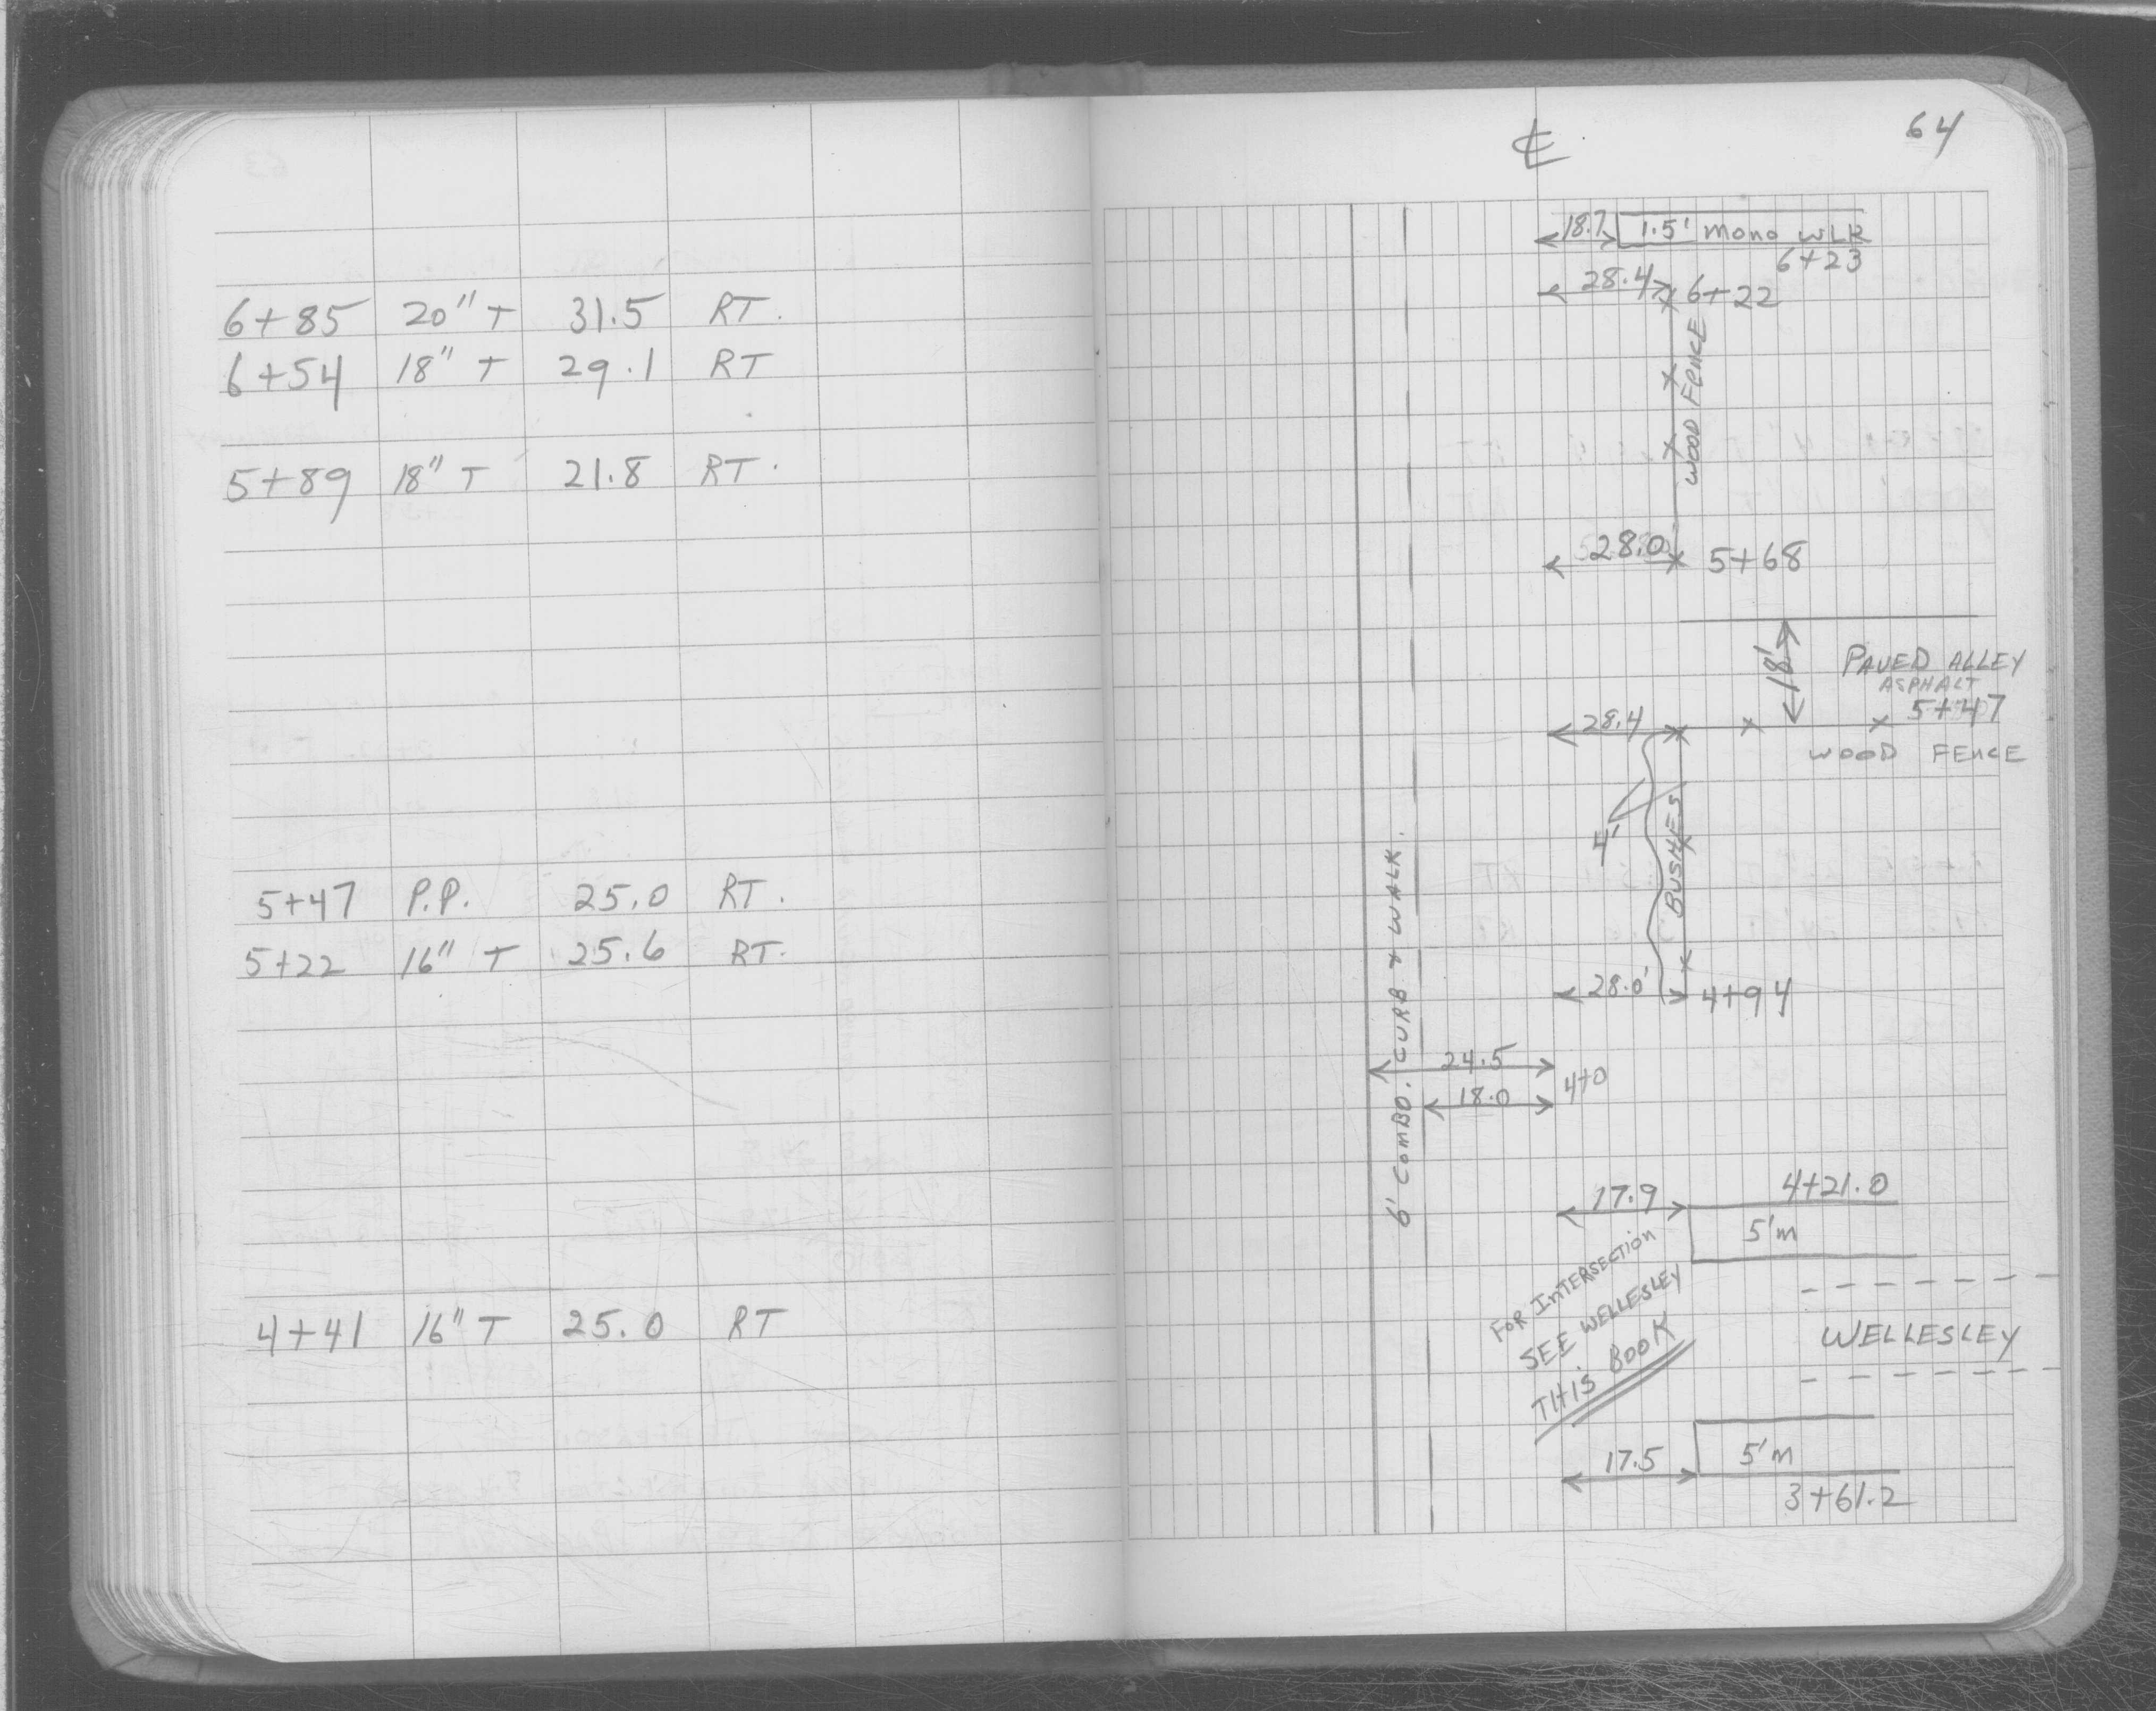 6+85 20" T 31.5 RT.
6+54 18" T 29.1 RT
5+89 18" T 21.8 RT.
5+47 P.P. 25.0 RT.
5+22 16" T 25.6 RT.
4+41 16" T 25.0 RT
64
℄
18.7 1.5' mono WLK
6+23
28.4 6+22
WOOD FENCE
28.0 5+68
18'
PAVED ALLEY
ASPHALT
28.4 5+47
WOOD FENCE
4'
BUSHES
28.0' 4+94
6' COMBO. CURB & WALK.
24.5
18.0 4+0
17.9 4+21.0
5'm
FOR INTERSECTION
SEE WELLESLEY
THIS BOOK
WELLESLEY
17.5 5'm
3+61.2